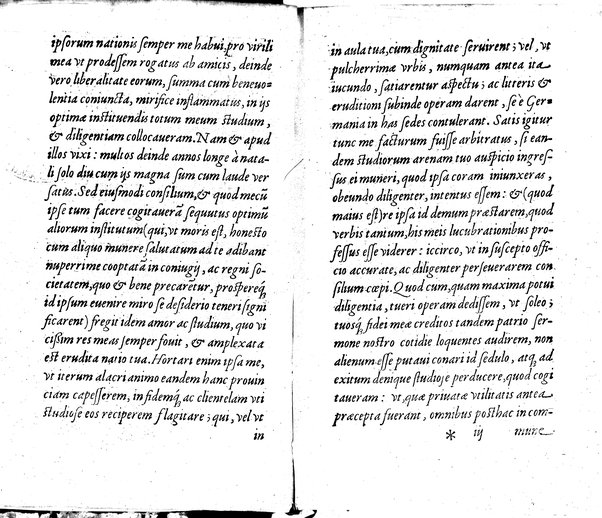 ipsorum nationis semper me habui, pro virili
mea vt prodessem rogatus ab amicis, deinde
vero liberalitate eorum, summa cum beneuo-
lentia coniuncta, mirifice inflammatus, in ijs
optimæ instituendis totum meum studium,
& diligentiam collocaueram. Nam & apud
illos vixi: multos deinde annos longe à nata-
li solo diu cum ijs magna sum cum laude ver
satus. Sed eiusmodi consilium, & quod mecũ
ipse tum facere cogitauerã sequutus optimũ
aliorum institutum (qui, vt moris est, honesto
cum aliquo munere salutatum ad te adibant
nuperrime cooptatã in coniugij, ac regni so-
cietatem, quo & bene precarẽtur, prosperéq;
id ipsum euenire miro se desiderio teneri signi
ficarent) fregit idem amor ac studium, quo vi
cißim res meas semper fouit, & amplexata
est erudita natio tua. Hortari enim ipsa me,
vt iterum alacri animo eandem hanc prouin
ciam capesserem, in fidemq; ac clientelam vti
studiose eos reciperem flagitare; qui, vel vt
in
in aula tua, cum dignitate seruirent; vel, vt
pulcherrimæ vrbis, nunquam antea ita
iucundo, satiarentur aspectu; ac literis &
eruditioni subinde operam darent, se è Ger-
mania in has sedes contulerant. Satis igitur
tunc me facturum fuisse arbitratus, si ean-
dem studiorum arenam tuo auspicio ingres-
sus ei muneri, quod ipsa coram iniunxeras,
obeundo diligenter, intentus essem: & (quod
maius est) re ipsa id demum præstarem, quod
verbis tantum, his meis lucubrationibus pro-
fessus esse viderer: iccirco, vt in suscepto offi-
cio accurate, ac diligenter perseuerarem con
silium cœpi. Quod cum, quam maxima potui
diligentia, tueri operam dedissem, vt soleo;
tuosq; fidei meæ creditos tandem patrio ser-
mone nostro cotidie loquentes audirem, non
alienum esse putaui conari id sedulo, atq; ad
exitum denique studiose perducere, quod cogi
taueram: vt, quæ priuatæ vtilitatis antea
præcepta fuerant, omnibus posthac in com-
* iij mune